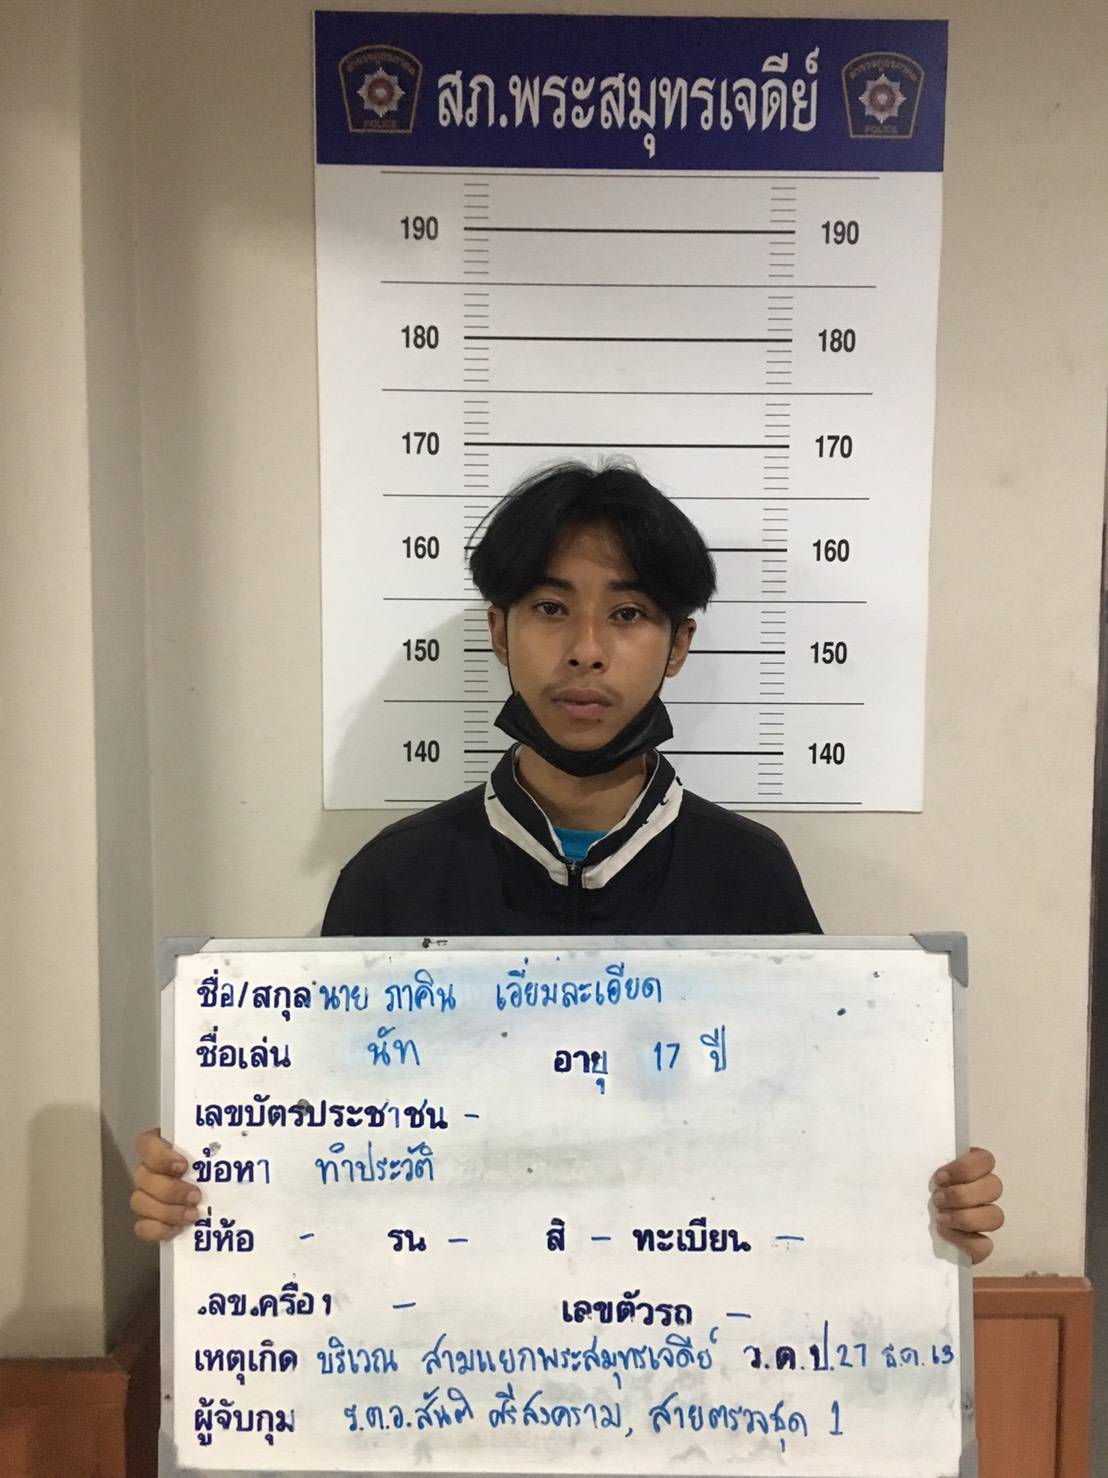 สภ.พระสมุทรเจดีย์
POLICE POLICE
190 190
180 180
170 170
160 160
150 150
140 140
ชื่อ/สกุล นาย ภาคิน เอี่ยมละเอียด
ชื่อเล่น นัท อายุ 17 ปี
เลขบัตรประชาชน -
ข้อหา ทำประวัติ
ยี่ห้อ - รน - สี - ทะเบียน -
.ลข.ครือง - เลขตัวรถ -
เหตุเกิด บริเวณ สามแยกพระสมุทรเจดีย์ ว.ด.ป.27 ธ.ค.63
ผู้จับกุม ร.ต.อ.สันติ ศรีสงคราม, สายตรวจชุด 1